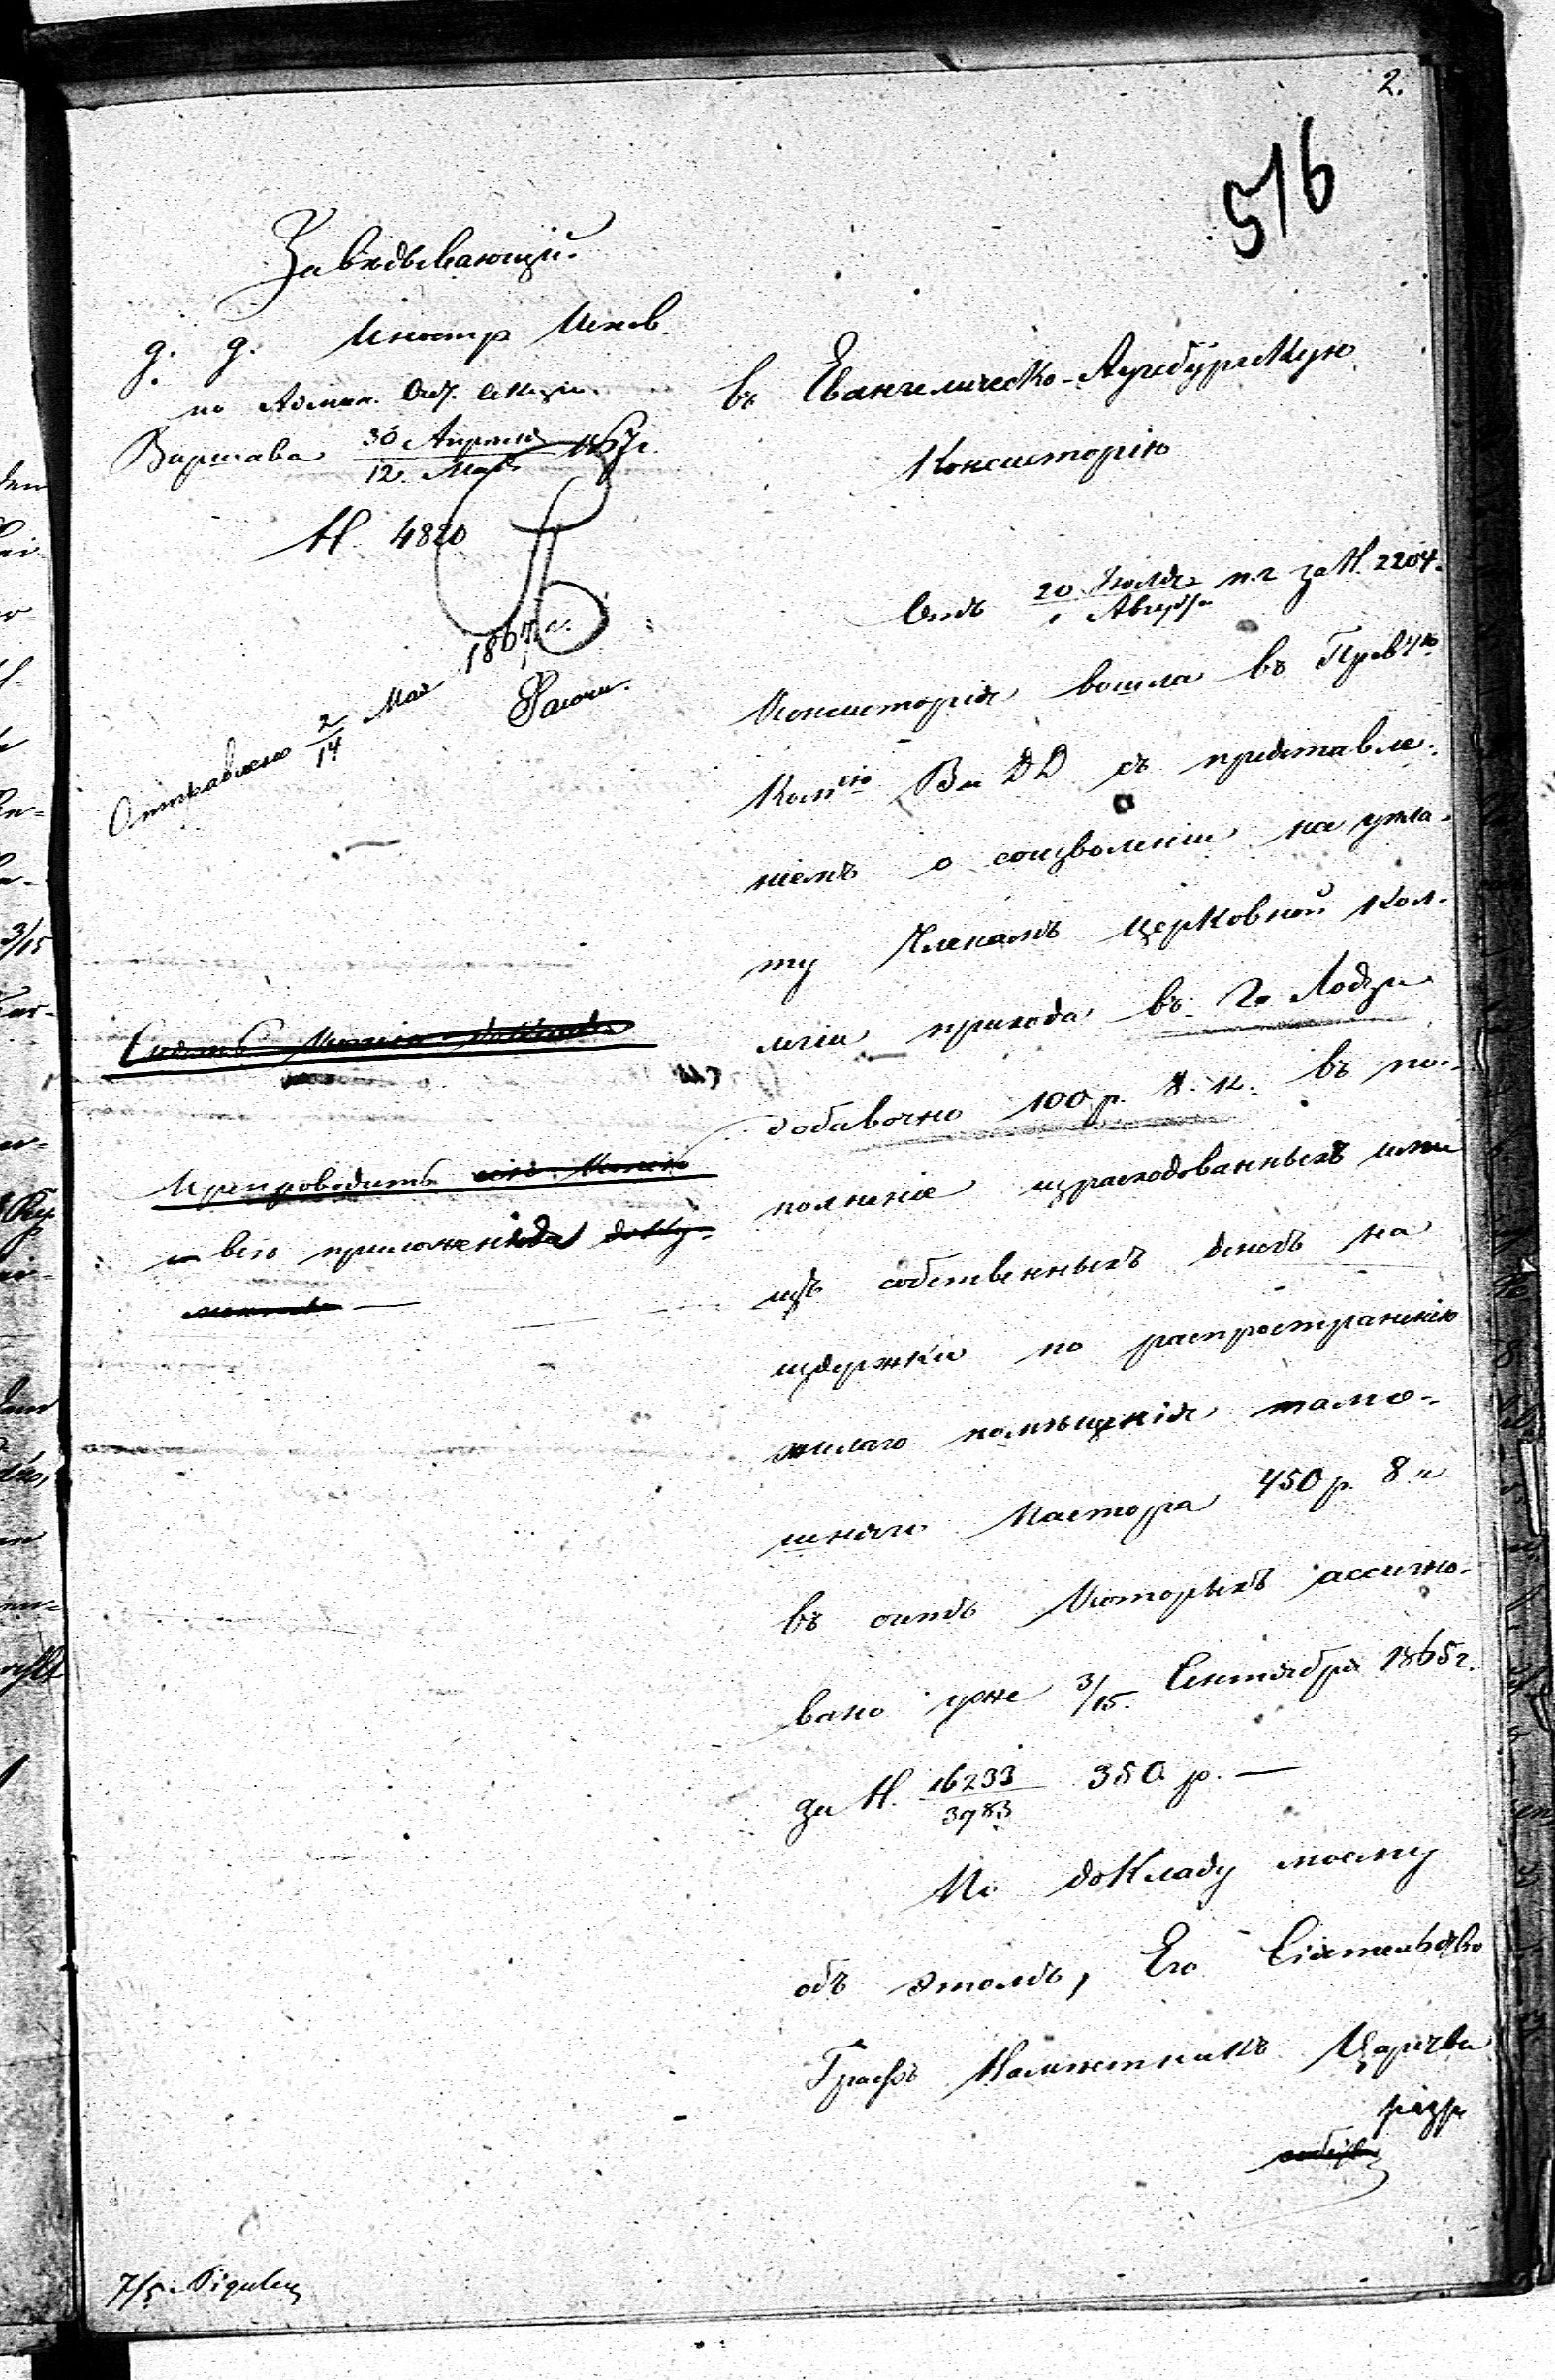 2.
516
Завѣдывающій
д. д. Иностр Испов.
по Админ. Отд. Секція
Варшава 30 Апрѣля / 12 Мая 1867г.
№ 4820
Отправлено 2/14 Мая 1867 г.
въ Евангелическо-Аугсбургскую
Консисторію
Отъ 20 Іюля / 1 Август п.г за №. 2204.
Консисторія вошла въ Прав.ую
Ком.сію Вн ДД съ представле-
ніемъ о соизволеніи на упла-
ту Членамъ Церковной Кол-
легіи прихода въ Г. Лодзи
добавочно 100 р. 8. к. въ по-
полненіе израсходованныхъ ими
изъ собственныхъ денегъ на
издержки по распространенію
жилаго помѣщенія тамо-
шняго Пастора 450 р. 8 к
въ счетъ которыхъ ассигно-
вано уже 3/15 Сентября 1865 г.
за №. 16233/3983 350 р. —
По докладу моему
объ этомъ, Его Сіятельство
Графъ Намѣстникъ Царства
разр
Препроводить
и всѣ приложенія
7/5